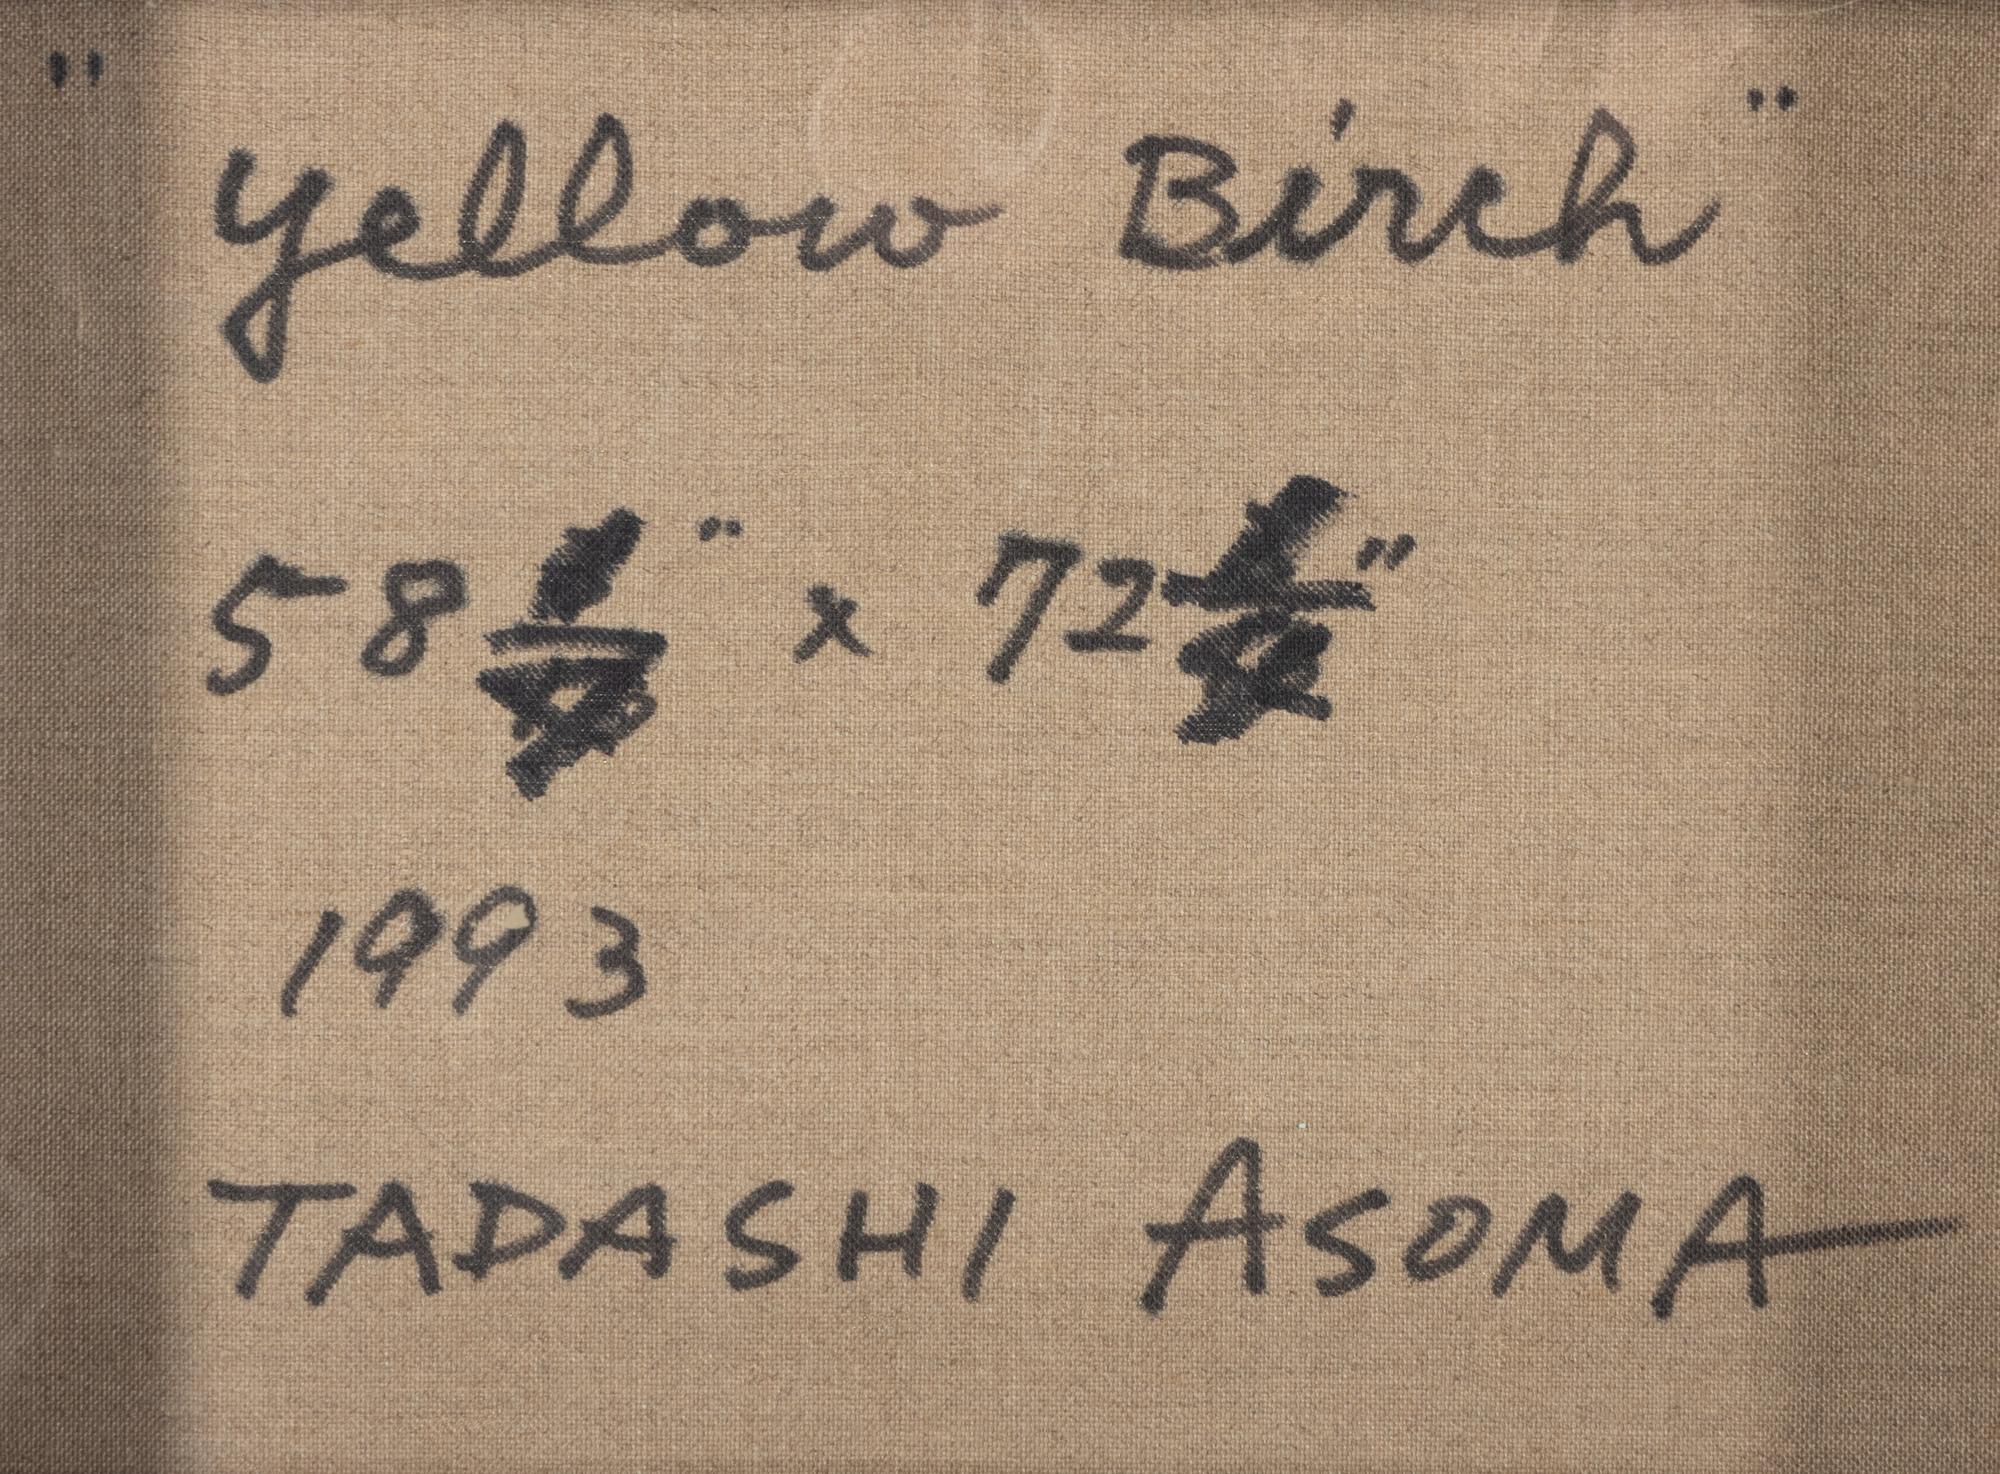 "yellow Birch"
58" x 72"
1993
TADASHI ASOMA